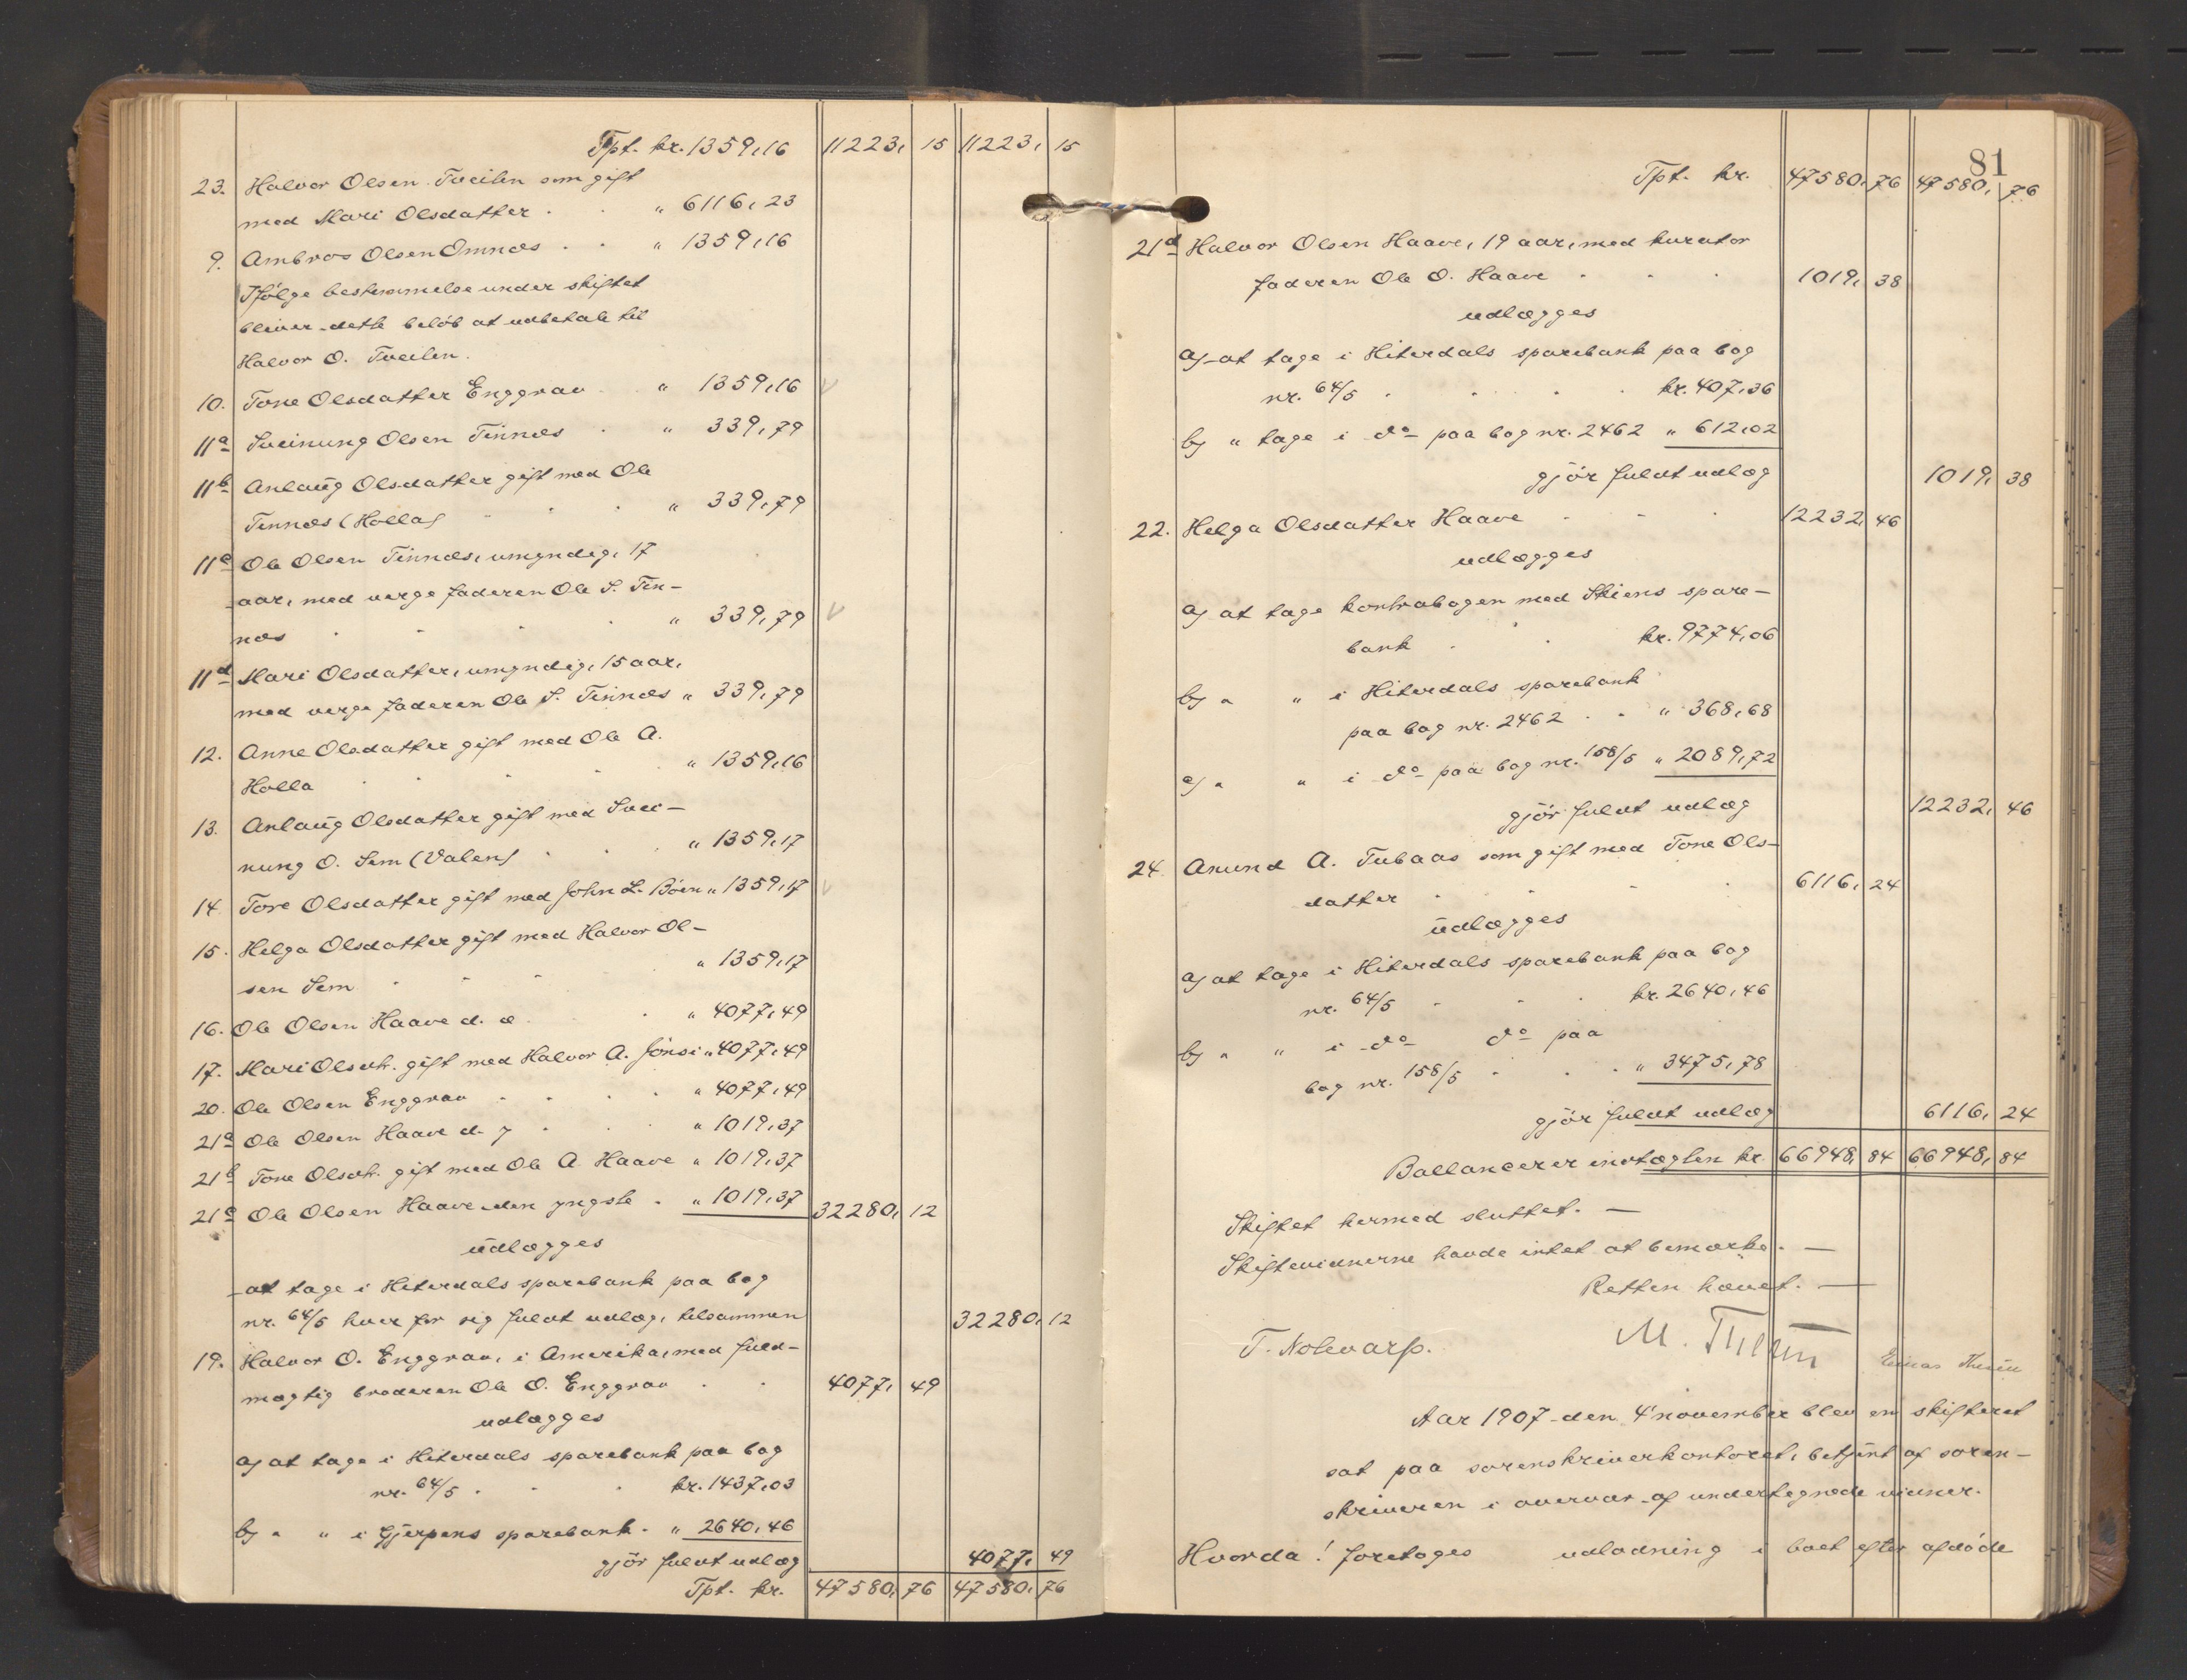 Tpt. kr. 1359,16 11223, 15 11223, 15
23. Halvor Olsen Tveiten som gift
med Mari Olsdatter . . " 6116,23
9. Ambros Olsen Omnæs . . " 1359,16
Ifølge bestemmelse under skiftet
bliver dette beløb at udbetale til
Halvor O. Tveiten.
10. Tone Olsdatter Enggrav . " 1359,16
11a Sveinung Olsen Tinnæs . " 339,79
11b Anlaug Olsdatter gift med Ole
Tinnæs (Holla) . . . " 339,79
11c Ole Olsen Tinnæs, umyndig, 17
aar, med verge faderen Ole S. Tin-
næs . . . . " 339,79
11d Mari Olsdatter, umyndig, 15 aar,
med verge faderen Ole S. Tinnæs " 339,79
12. Anne Olsdatter gift med Ole A.
Holla . . . . " 1359,16
13. Anlaug Olsdatter gift med Svei-
nung O. Sem (Valen) . . " 1359,17
14. Tore Olsdatter gift med John L. Bøen " 1359,17
15. Helga Olsdatter gift med Halvor Ol-
sen Sem . . . " 1359,17
16. Ole Olsen Haave d. æ. . . " 4077,49
17. Mari Olsdt. gift med Halvor A. Jønsi " 4077,49
20. Ole Olsen Enggrav . . . . " 4077,49
21a Ole Olsen Haave d. y . . " 1019,37
21b Tone Olsdt. gift med Ole A. Haave " 1019,37
21c Ole Olsen Haave den yngste . " 1019,37 32280, 12
udlægges
at tage i Hiterdals sparebank paa bog
nr. 64/5 hver for sig fuldt udlæg, tilsammen 32280, 12
19. Halvor O. Enggrav, i Amerika, med fuld-
mægtig broderen Ole O. Enggrav . . 4077, 49
udlægges
a) at tage i Hiterdals sparebank paa bog
nr. 64/5 . . . kr. 1437,03
b) " " i Gjerpens sparebank . " 2640,46
gjør fuldt udlæg 4077, 49
Tpt. kr. 47580, 76 47580, 76
81
Tpt. kr. 47580, 76 47580, 76
21d Halvor Olsen Haave, 19 aar, med kurator
faderen Ole O. Haave . . . 1019, 38
udlægges
a) at tage i Hiterdals sparebank paa bog
nr. 64/5 . . . . kr. 407,36
b) " tage i do paa bog nr. 2462 " 612,02
gjør fuldt udlæg 1019, 38
22. Helga Olsdatter Haave . . . 12232, 46
udlægges
a) at tage kontrabogen med Skiens spare-
bank . . kr. 9774,06
b) " " i Hiterdals sparebank
paa bog nr. 2462 . . " 368,68
c) " " i do paa bog nr. 158/5 " 2089,72
gjør fuldt udlæg 12232, 46
24. Anund A. Tubaas som gift med Tone Ols-
datter . . . . 6116, 24
udlægges
a) at tage i Hiterdals sparebank paa bog
nr. 64/5 . . . kr. 2640,46
b) " " i do do paa
bog nr. 158/5 . . . " 3475,78
gjør fuldt udlæg 6116, 24
Ballancerer indtægten kr. 66948, 84 66948, 84
Skiftet hermed sluttet. —
Skiftevidnerne havde intet at bemærke. —
Retten hævet. —
T. Notevarp. M. Thesen Einar Thesen
Aar 1907 den 4 november blev en skifteret
sat paa sorenskriverkontoret, betjent af soren-
skriveren i overvær af undertegnede vidner.
Hvorda! foretoges udlodning i boet efter afdøde